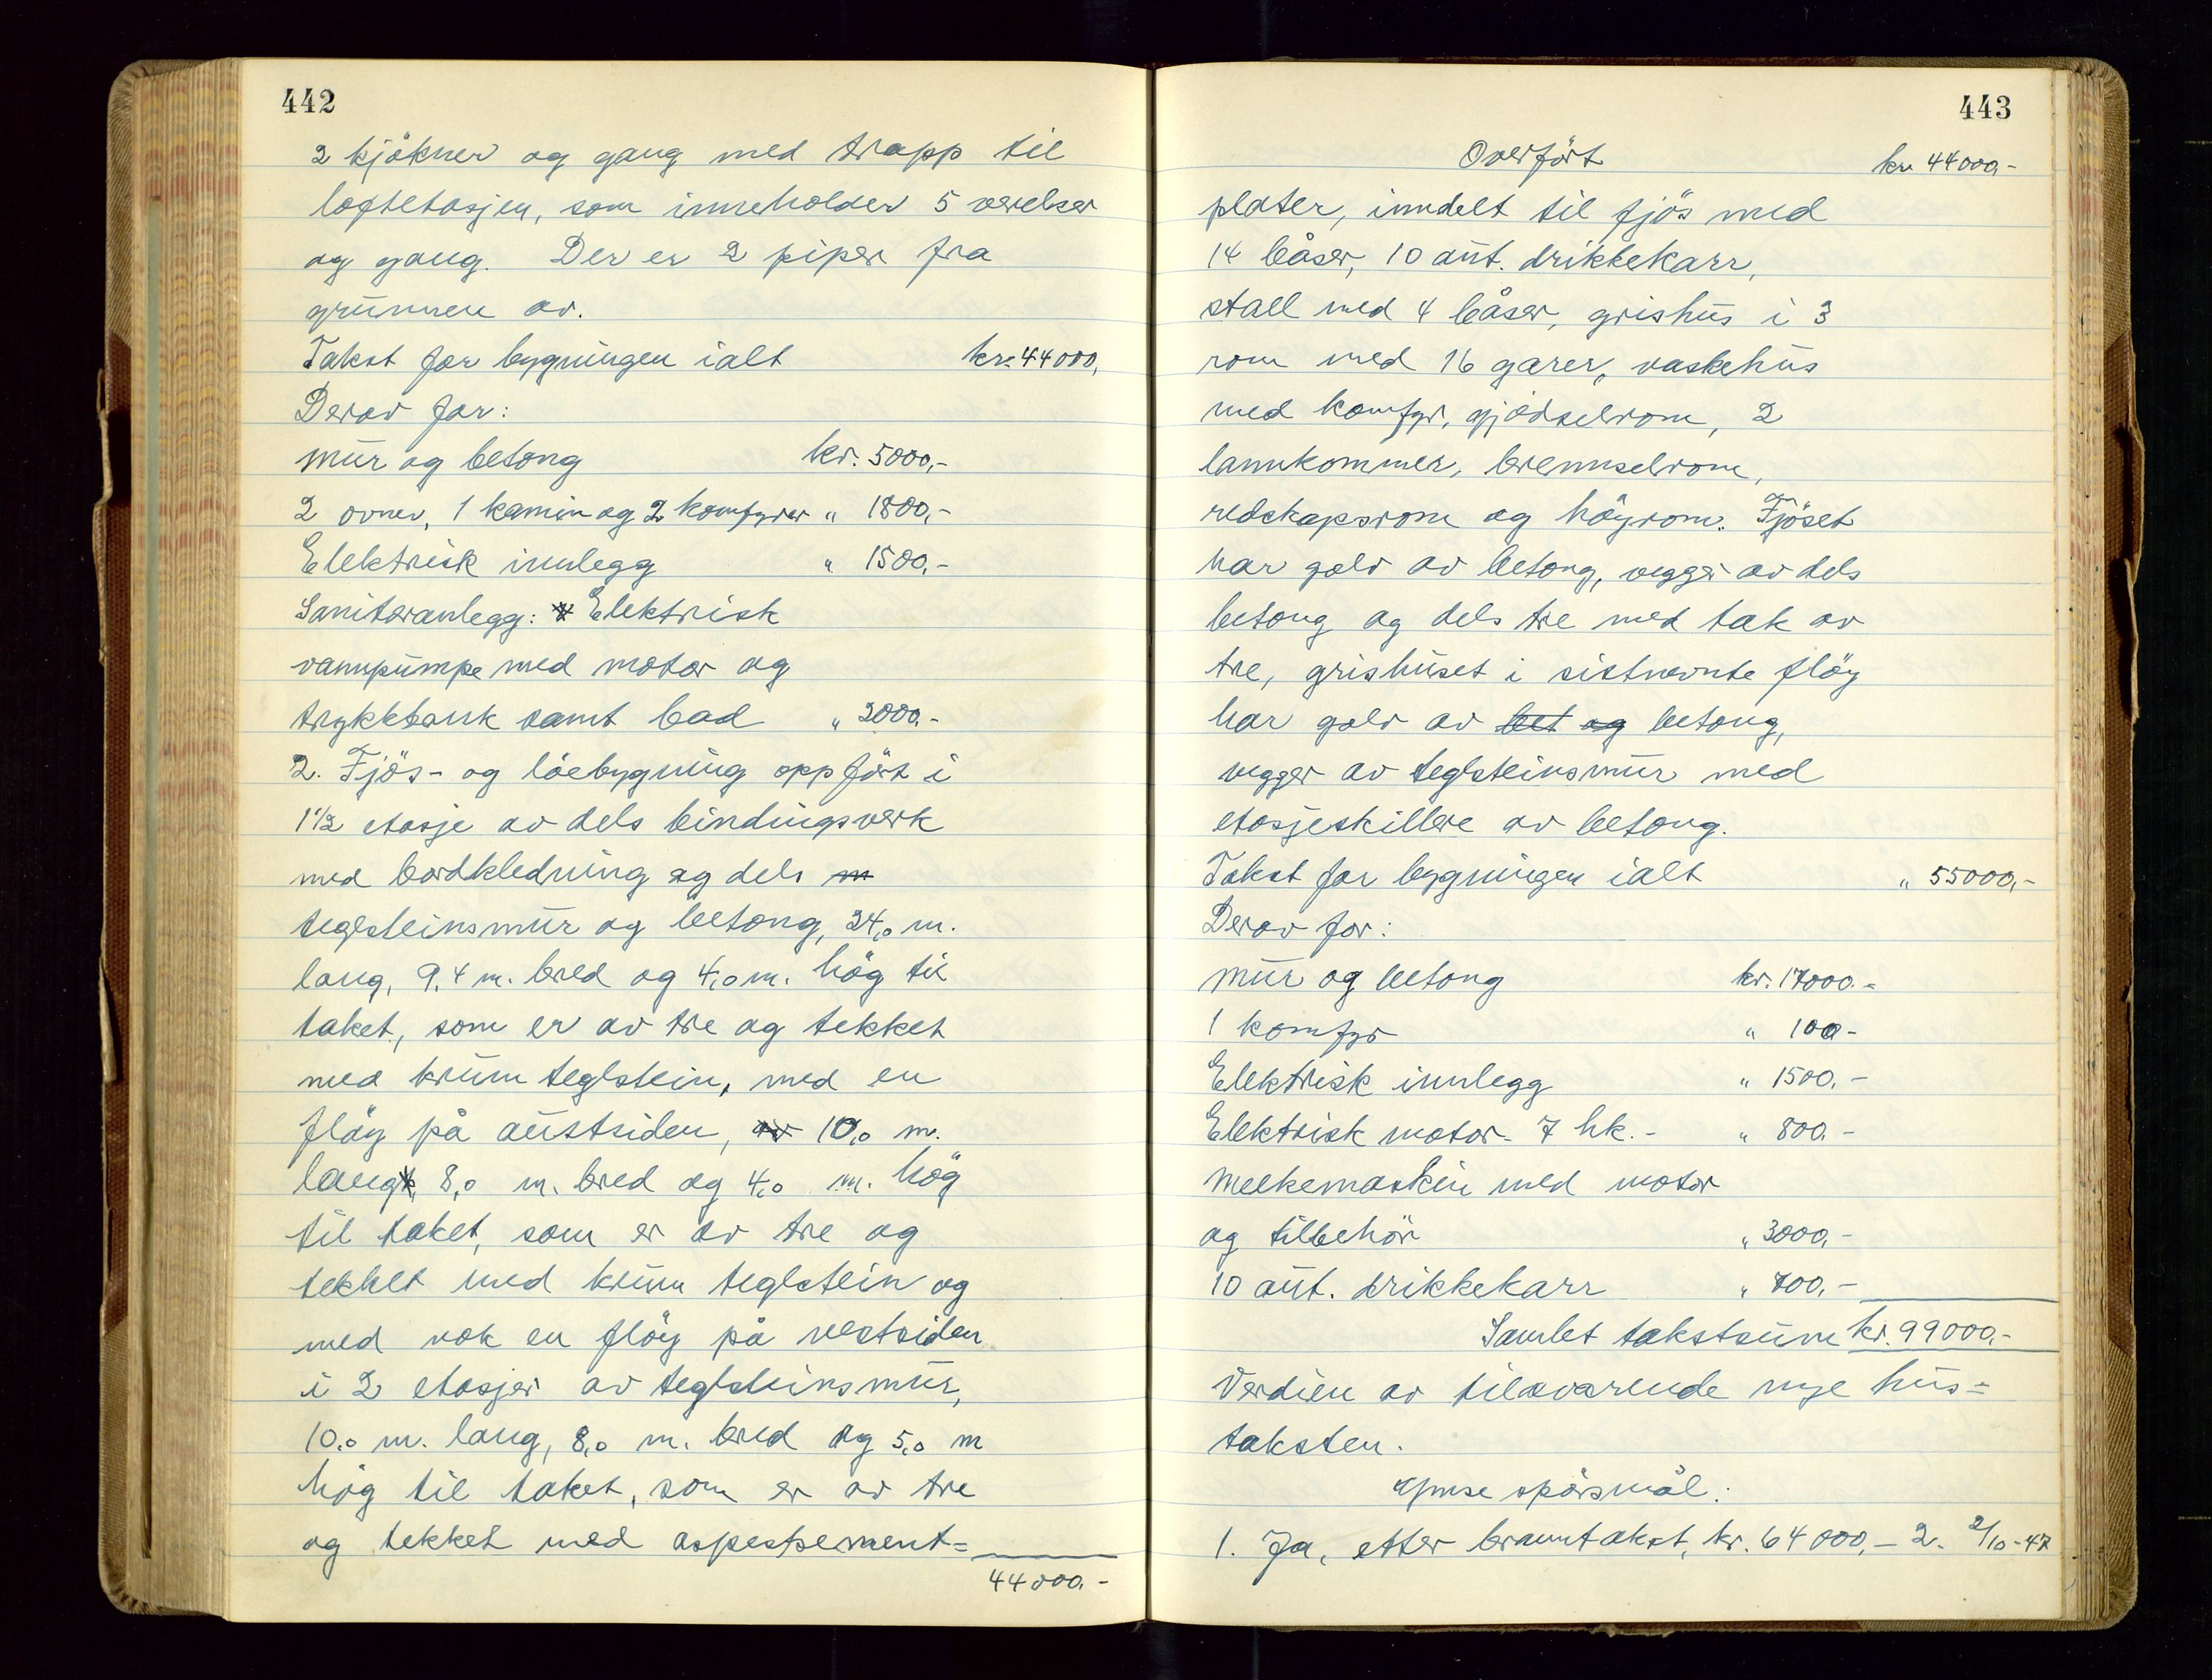 442
2 kjökner og gang med trapp til
loftetasjen, som inneholder 5 værelser
og gang. Der er 2 piper fra
grunnen av.
Takst for bygningen ialt kr. 44000,
Derav for:
mur og betong kr. 5000,-
2 ovner, 1 kamin og 2 komfyrer " 1800,-
Elektrisk innlegg " 1500,-
Sanitæranlegg: Elektrisk
vannpumpe med motor og
trykktank samt bad " 2000.-
2. Fjös- og löebygning oppfört i
1 1/2 etasje av dels bindingsverk
med bordkledning og dels m
teglsteinsmur og betong, 24,0 m.
lang, 9,4 m. bred og 4,0 m. hög til
taket, som er av tre og tekket
med krum teglstein, med en
flöy på austsiden, av 10,0 m.
lang, 8,0 m. bred og 4,0 m. hög
til taket, som er av tre og
tekket med krum teglstein og
med nok en flöy på vestsiden
i 2 etasjer av teglsteinsmur,
10,0 m. lang, 8,0 m. bred og 5,0 m
hög til taket, som er av tre
og tekket med aspestsement=
44000.-
443
Overfört kr. 44000,-
plater, inndelt til fjös med
14 båser, 10 aut. drikkekarr,
stall med 4 båser, grishus i 3
rom med 16 garer, vaskehus
med komfyr, gjödselrom, 2
lannkommer, brennselrom,
redskapsrom og höyrom. Fjöset
har golv av betong, vegger av dels
betong og dels tre med tak av
tre, grishuset i sistnevnte flöy
har golv av bet og betong,
vegger av teglsteinsmur med
etasjeskillere av betong.
Takst for bygningen ialt " 55000,-
Derav for:
mur og betong kr. 17000.-
1 komfyr " 100-
Elektrisk innlegg " 1500.-
Elektrisk motor- 7 hk.- " 800.-
Melkemaskin med motor
og tilbehör " 3000,-
10 aut. drikkekarr " 700,-
Samlet takstsum kr. 99000,-
Verdien av tilsvarende nye hus=
taksten.
Ymse spörsmål:
1. Ja, etter branntakst, kr. 64000,- 2. 2/10-47